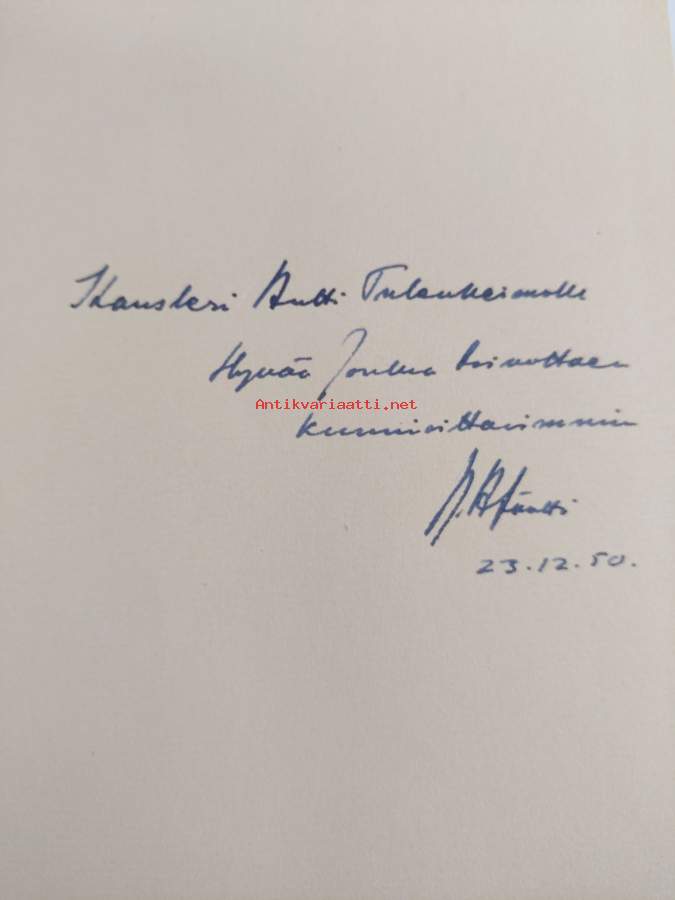 Kansleri Antti Tulenheimolle
Hyvää Joulua toivottaen
Antikvariaatti.net
kunnioittavimmin
23.12.50.